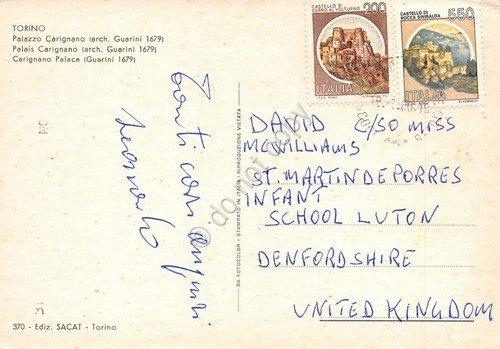 TORINO
Palazzo Carignano (arch. Guarini 1679)
Palais Carignano (arch. Guarini 1679)
Carignano Palace (Guarini 1679)
Tanti cari auguri
Leonardo
370 - Ediz. SACAT - Torino
DA FOTOCOLOR - STAMPATO IN ITALIA - RIPRODUZIONE VIETATA
CASTELLO DI
CERRO AL VOLTURNO
200
ITALIA
CASTELLO DI
ROCCA SINIBALDA
550
ITALIA
DAVID C/SO MISS
MCWILLIAMS
ST. MARTIN DE PORRES
INFANT
SCHOOL LUTON
DENFORDSHIRE
UNITED KINGDOM
do not copy